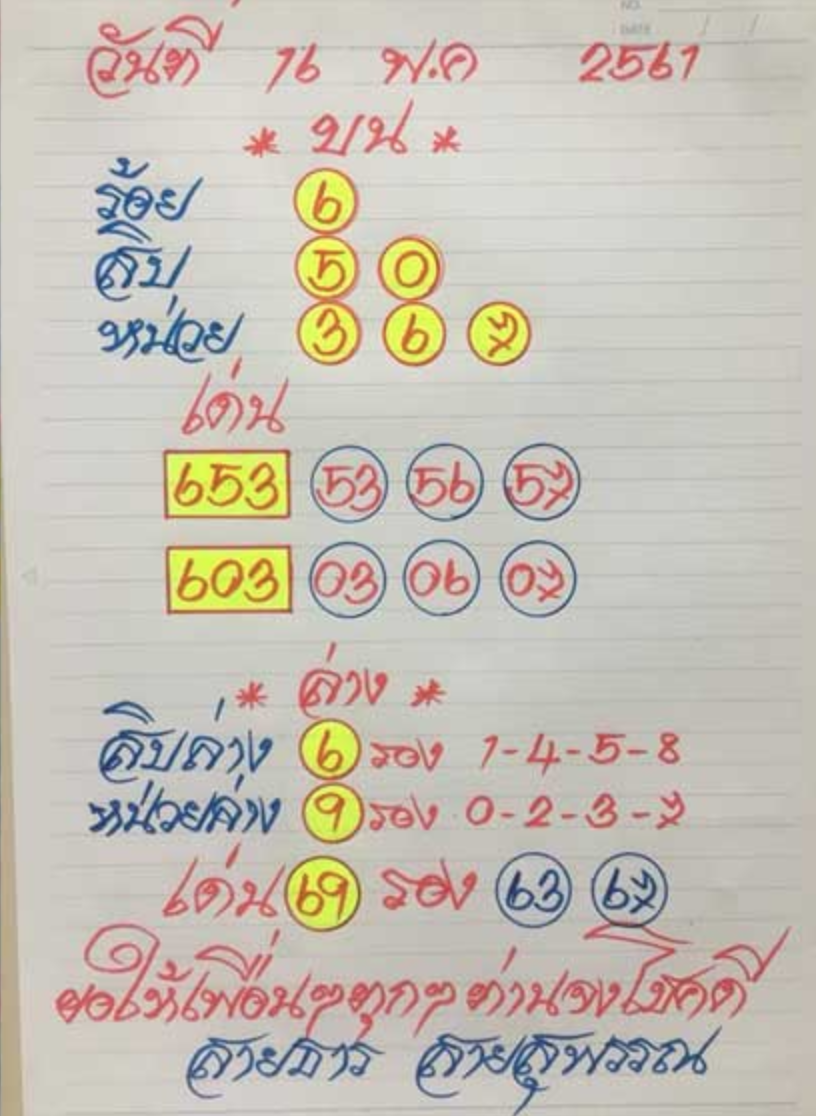 NO.
DATE / /
วันที่ 16 พ.ค 2561
* บน *
ร้อย 6
สิบ 5 0
หน่วย 3 6 7
เด่น
653 53 56 57
603 03 06 07
* ล่าง *
สิบล่าง 6 รอง 1-4-5-8
หน่วยล่าง 9 รอง 0-2-3-7
เด่น 69 รอง 63 67
ขอให้เพื่อนๆทุกๆท่านจงโชคดี
สายธาร สายสุพรรณ